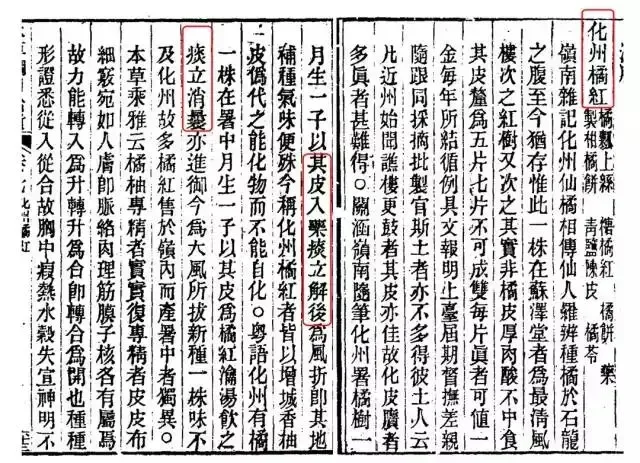 化州橘紅 橘瓤上絲 橘紅 橘餅 藥
製柑橘餅 青鹽陳皮 橘苓
嶺南雜記化州仙橘相傳仙人羅辨種橘於石龍
之腹至今猶存惟此一株在蘇澤堂者為最清風
樓次之紅樹又次之其實非橘皮厚肉酸不中食
其皮釐為五片七片不可成雙每片眞者可値一
金每年所結循例具文報明上臺屆期督撫差親
隨跟同採摘批製官斯土者亦不多得彼土人云
凡近州始聞譙樓更鼓者其皮亦佳故化皮贋者
多眞者甚難得○關涵嶺南隨筆化州署橘樹一
月生一子以其皮入藥痰立解後為風折即其地
補種氣味便殊今稱化州橘紅者皆以增城香柚
皮偽代之能化物而不能自化○粵語化州有橘
一株在署中月生一子以其皮為橘紅瀹湯飲之
痰立消曩亦進御今為大風所拔新種一株味不
及化州故多橘紅售於嶺內而產署中者獨異○
本草乘雅云橘柚專精者實實復專精者皮皮布
細竅宛如人膚即脈絡肉理筋膜子核各有屬焉
故力能轉入為升轉升為合即轉合為開也種種
形證悉從入從合故胸中瘕熱水穀失宣神明不